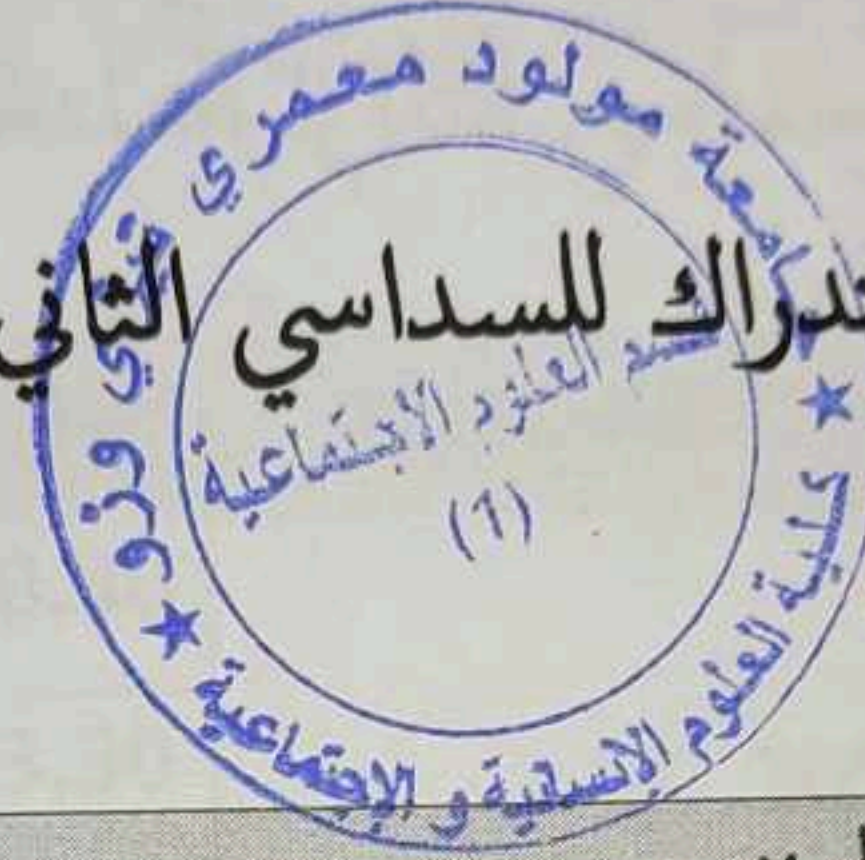 جامعة مولود معمري تيزي وزو
تدراك للسداسي الثاني
قسم العلوم الإجتماعية
(1)
كلية العلوم الإنسانية و الإجتماعية